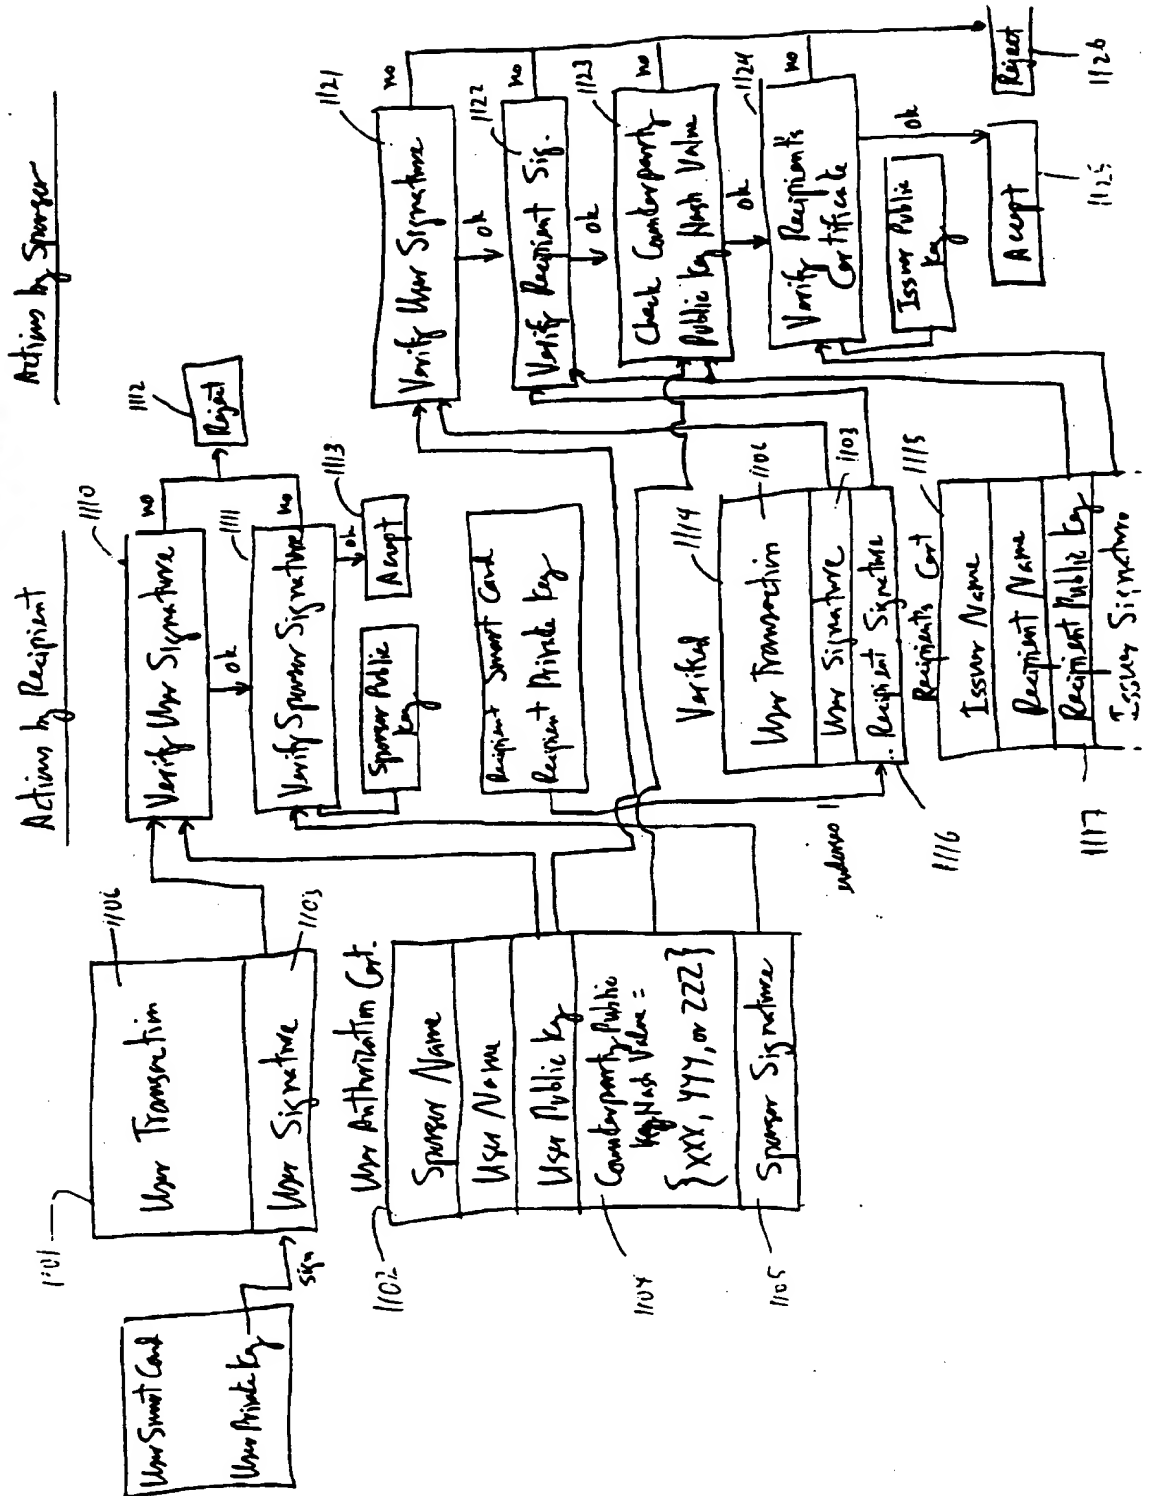 Actions by Recipient
Actions by Sponsor
User Smart Card
User Private Key
sign
1101
User Transaction
1106
User Signature
1103
User Authorization Cert.
1102
Sponsor Name
User Name
User Public Key
Counterparty Public
Key Hash Value =
{XXX, YYY, or ZZZ}
1104
Sponsor Signature
1105
1110
Verify User Signature
no
ok
1111
Verify Sponsor Signature
no
ok
1112
Reject
Sponsor Public
Key
1113
Accept
Recipient Smart Card
Recipient Private Key
Verified
1114
User Transaction
1106
User Signature
1103
Recipient Signature
1116
Recipients Cert
1115
Issuer Name
Recipient Name
Recipient Public Key
1117
Issuer Signature
1121
Verify User Signature
no
ok
1122
Verify Recipient Sig.
no
ok
1123
Check Counterparty
Public Key Hash Value
no
ok
1124
Verify Recipients
Certificate
no
ok
Issuer Public
Key
Accept
1125
Reject
1126